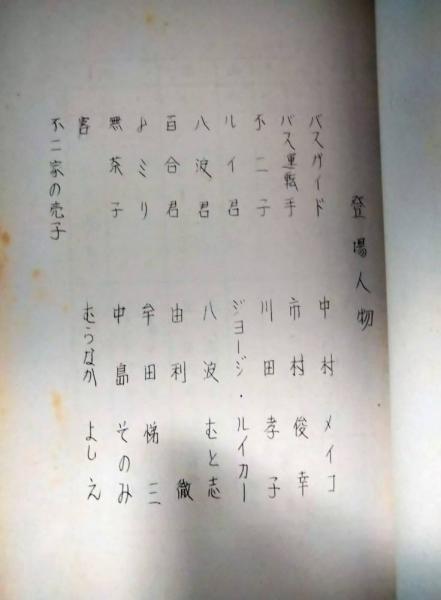 登場人物
バスガイド 中村メイコ
バス運転手 市村俊幸
不二子 川田孝子
ルイ君 ジョージ・ルイカー
八波君 八波むと志
百合君 由利徹
トミリ 牟田悌三
無茶子 中島そのみ
客 むらなか よしえ
不二家の売子